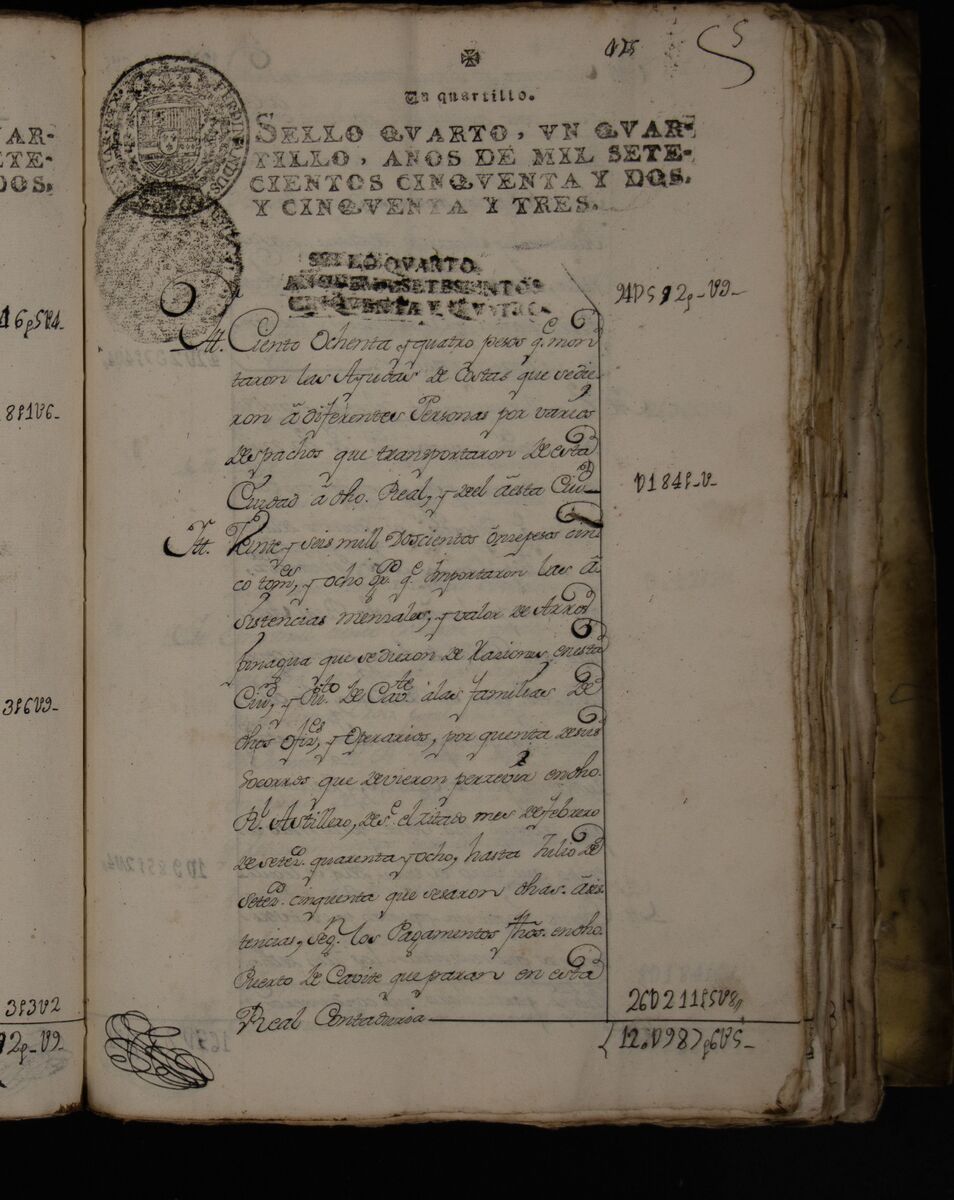 125
5
Un quartillo.
SELLO QVARTO, VN QVAR-
TILLO, AÑOS DE MIL SETE-
CIENTOS CINQVENTA Y DOS,
Y CINQVENTA Y TRES.
SELLO QVARTO
AÑO DE SETESIENTOS
CINQVENTA Y QVATRO
Ytt. Ciento Ochenta y quatro pesos q.e mon
taron las Ayudas de Costas que sedie-
ron à diferentes Personas por varios
despachos que transportaron de esta
Ciudad à dho. Real, y del àesta Ciud.
D184p-U-
Ytt. Veinte y seis mill Doscientos onze pesos cin
co tom.es, y ocho gr.s q.e importaron las à
sistencias mensales, y valor de Arros
pinagua que sedieron de Raziones en esta
Ciu.d, y Pu.to de Cav.te alas familias de
dhos ofiz.es, y Operarios, por quenta de sus
Socorros que devieron percevir en dho.
R.l Astillero, des.e el zitado mes de febrero
de setez. quarenta y ocho, hasta Julio de
setez. cinquenta que sesaron dhas. àsis
tencias, seg.n los Pagamentos fhos. en dho.
Puerto de Cavite que paran en esta
Real Contaduria
26D211p5U8
120D987p6U5-
AR-
ETE-
DOS,
16p5U4-
3p6U9-
3p3U2
2p-U9-